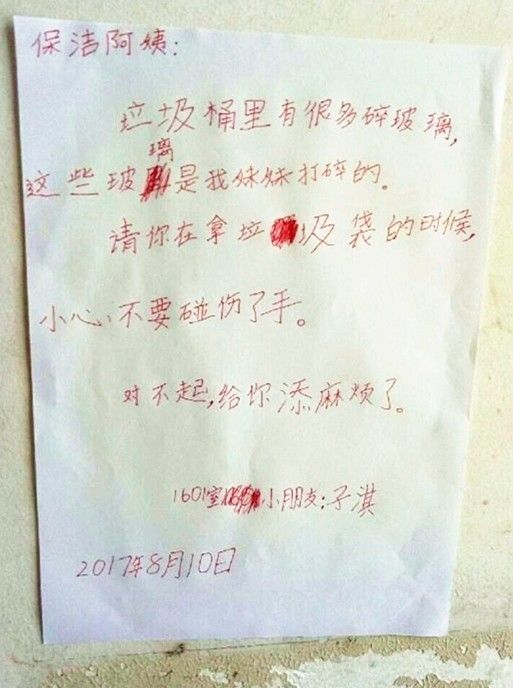 保洁阿姨:
垃圾桶里有很多碎玻璃,
这些玻璃是我妹妹打碎的。
请你在拿垃圾袋的时候,
小心、不要碰伤了手。
对不起,给你添麻烦了。
1601室小朋友:子淇
2017年8月10日